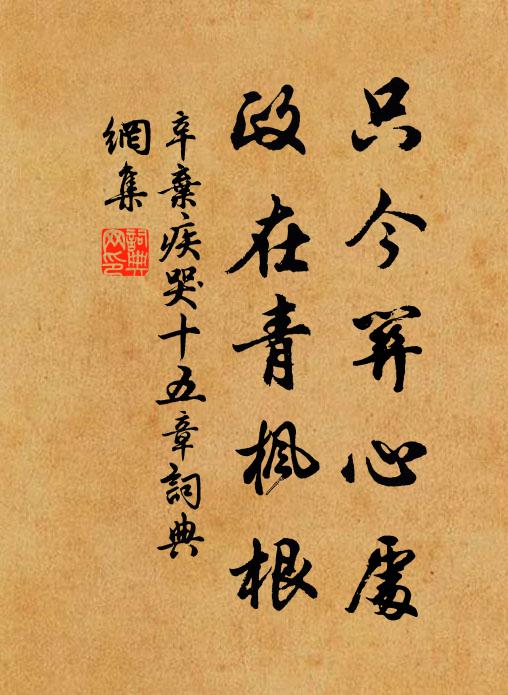 只今關心處
政在青楓根
辛棄疾哭十五章詞典
網集
詞典網印